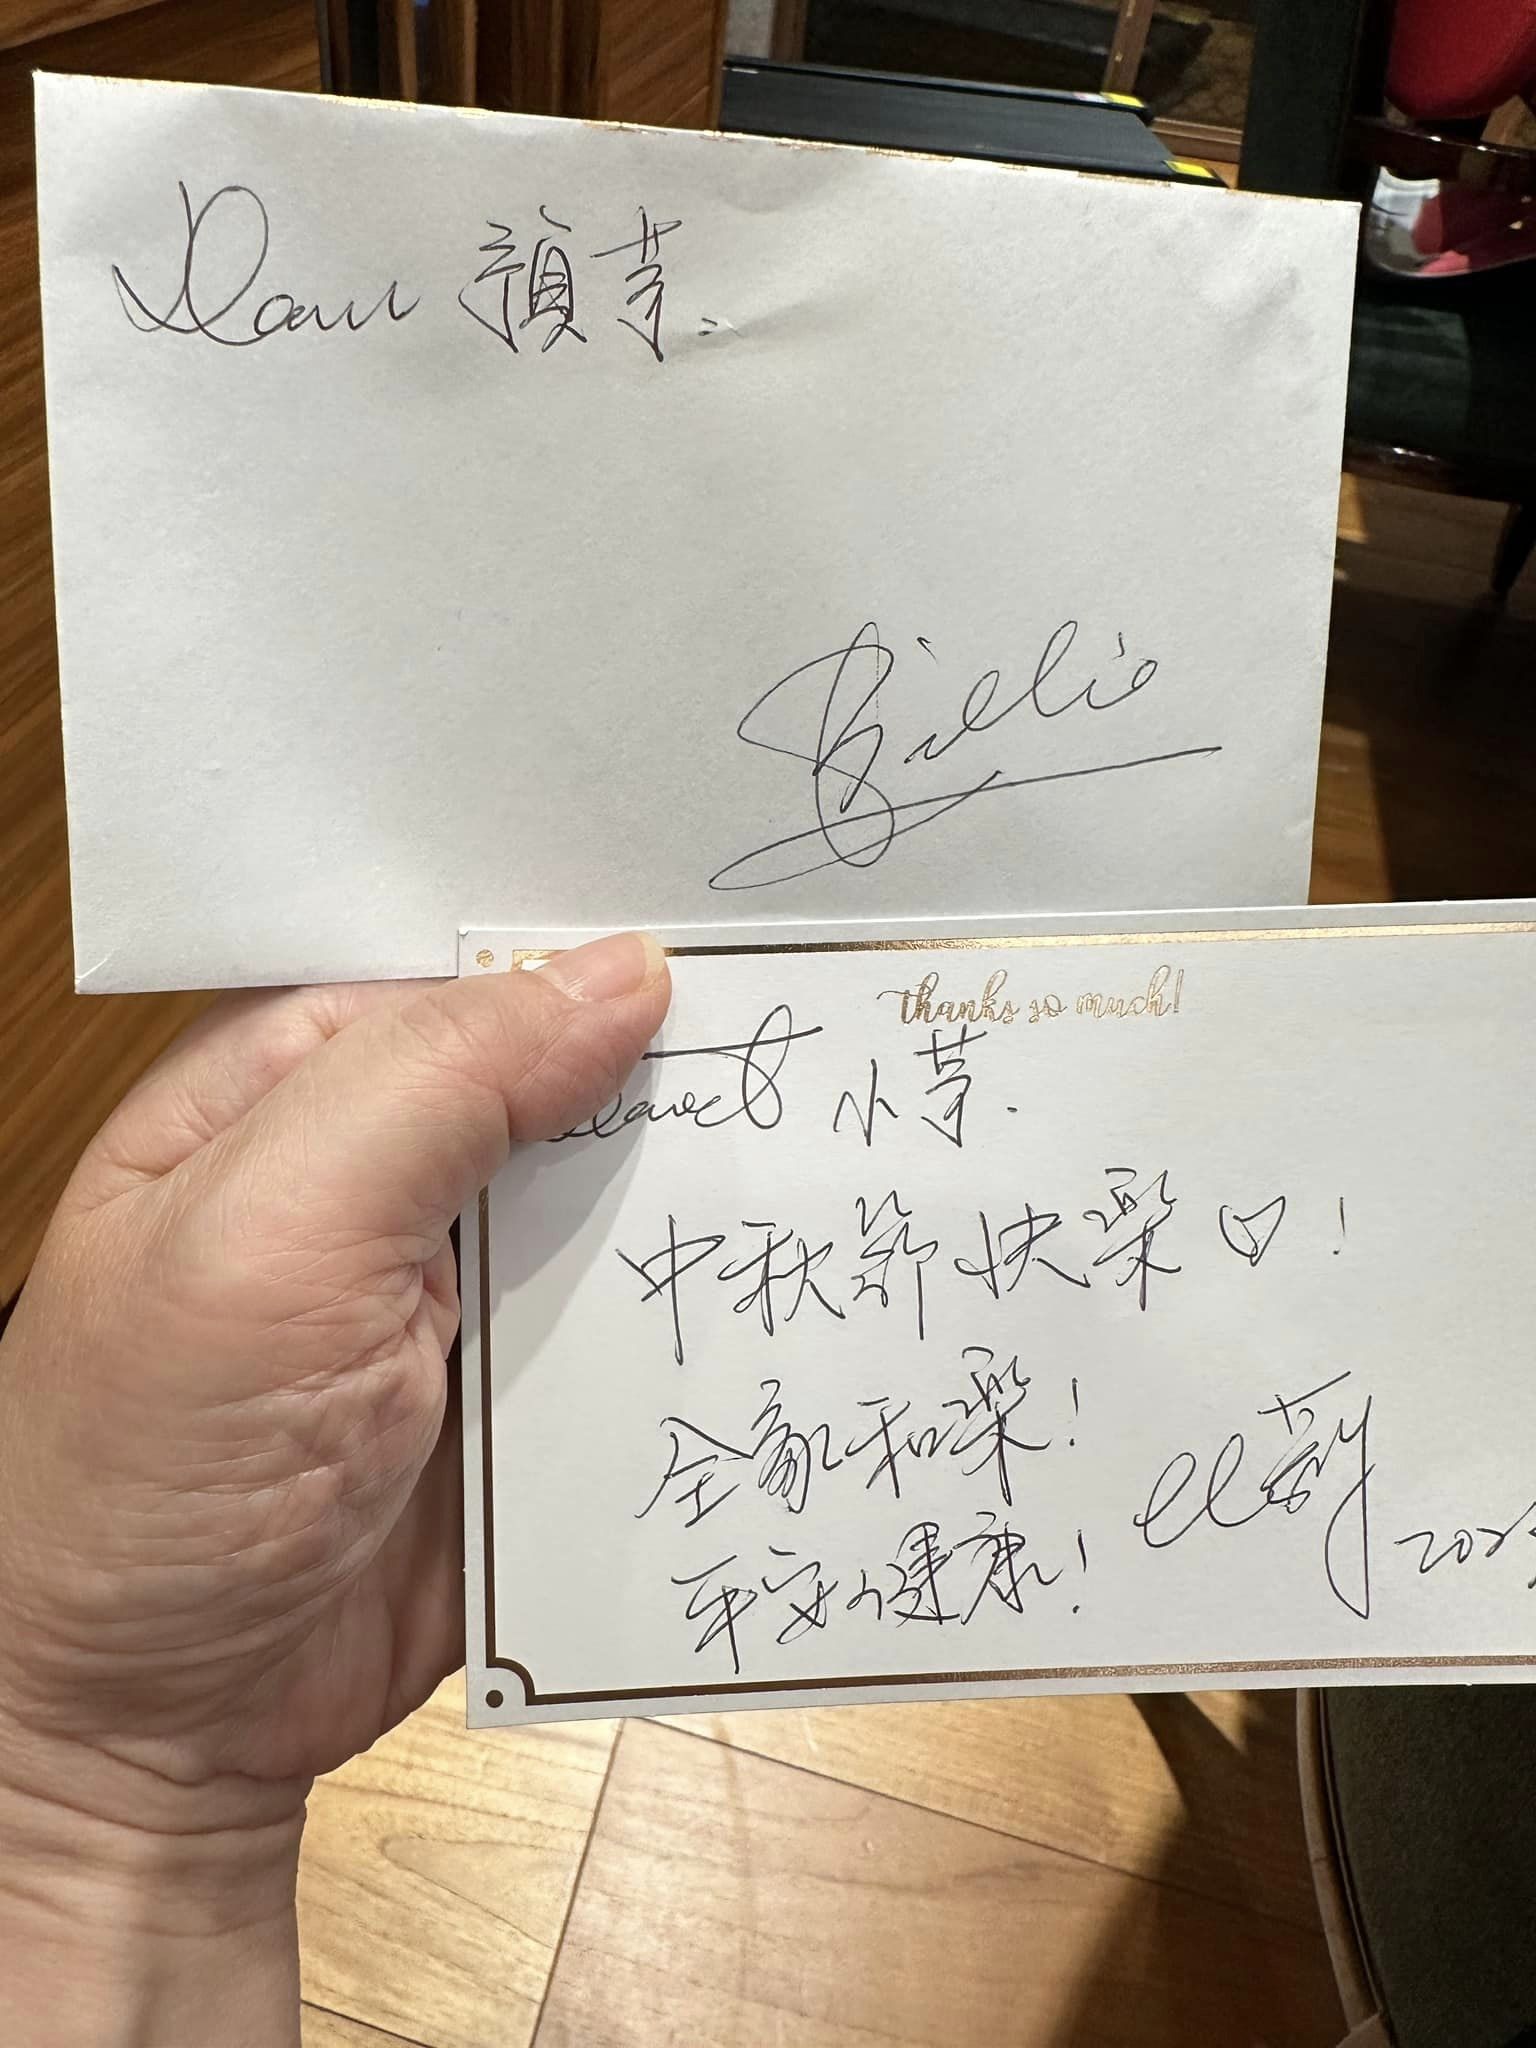 Dear 穎芋:
Billie
thanks so much!
Sweet 小芋.
中秋節快樂♡!
全家和樂!
平安健康!
比莉
202